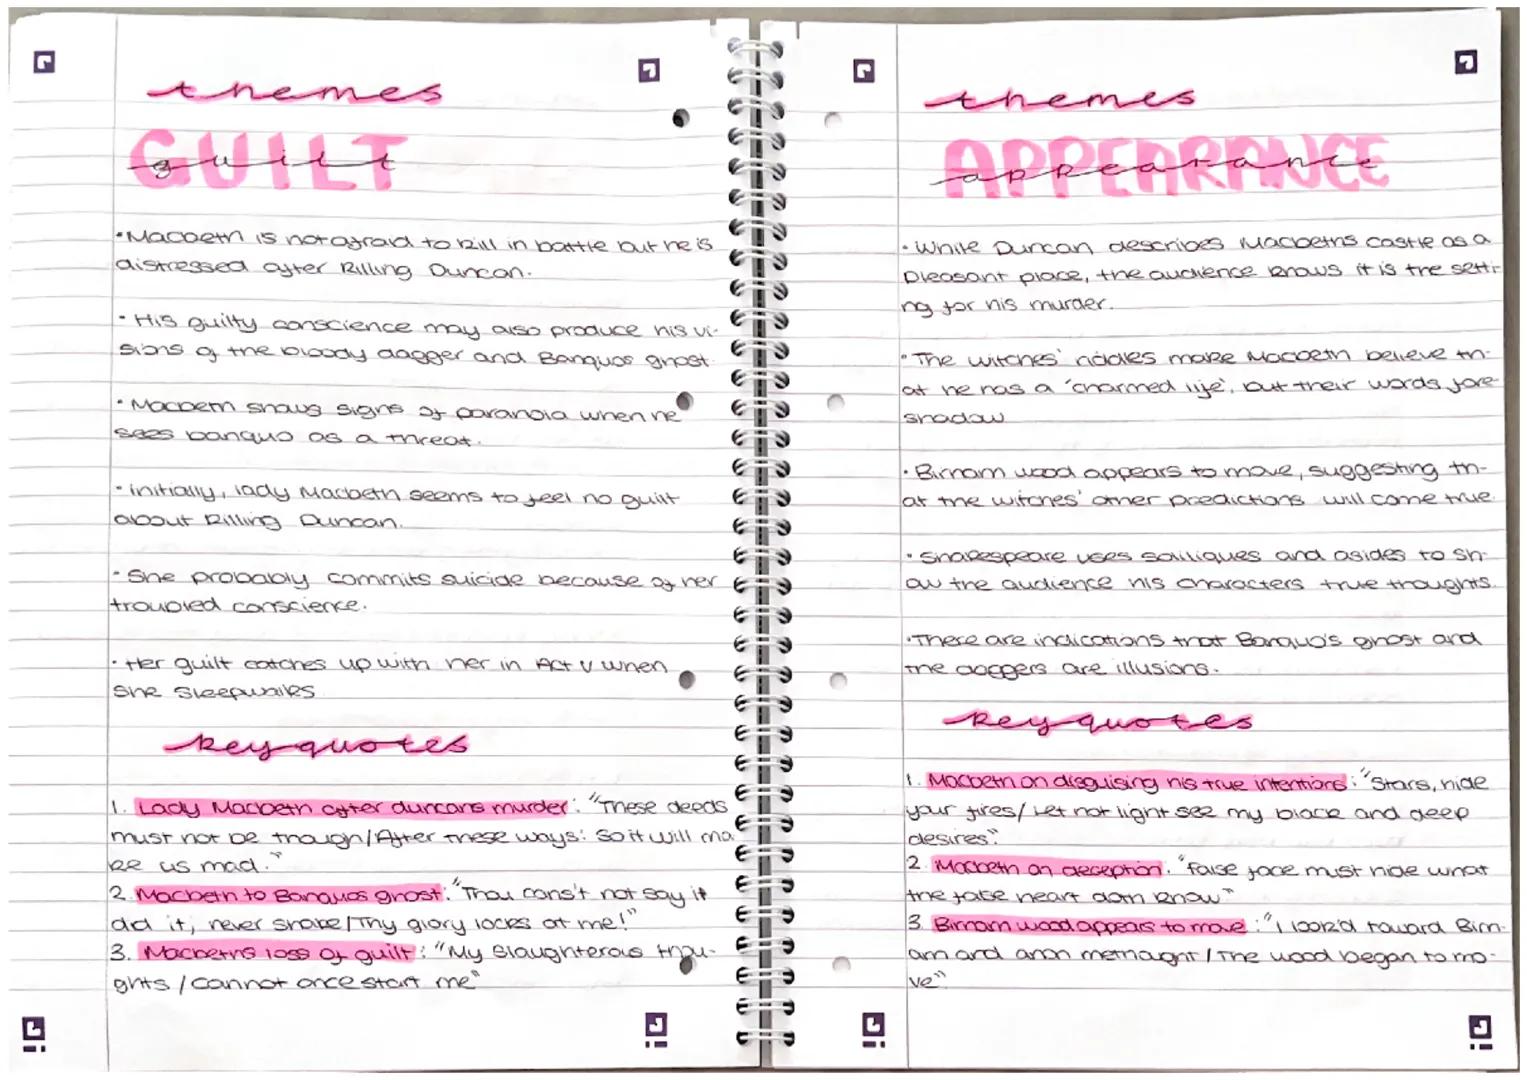 themes
GUILT
guilt
• Macbeth is not afraid to kill in battle but he is
distressed after killing Duncan.
• His guilty conscience may also produce his vi-
sions of the bloody dagger and Banquos ghost.
• Macbeth shows signs of paranoia when he
sees banquo as a threat.
• initially, lady Macbeth seems to feel no guilt
about killing Duncan.
• She probably commits suicide because of her
troubled conscience.
• Her guilt catches up with her in Act V when
she sleepwalks
key quotes
1. Lady Macbeth after duncans murder: "These deeds
must not be though/After these ways: So it will ma
ke us mad."
2. Macbeth to Banquos ghost: "Thou cans't not say it
did it, never shake/Thy glory locks at me!"
3. Macbeths loss of guilt: "My Slaughterous thou-
ghts / cannot once start me"
themes
APPEARANCE
appearance
• While Duncan describes Macbeths castle as a
pleasant place, the audience knows it is the setti-
ng for his murder.
• The witches' riddles make Macbeth believe th-
at he has a 'charmed life', but their words fore-
shadow
• Birnam wood appears to move, suggesting th-
at the witches' other predictions will come true.
• Shakespeare uses soliliques and asides to sh-
ow the audience his characters true thoughts.
• There are indications that Banquo's ghost and
the daggers are illusions.
key quotes
1. Macbeth on disguising his true intentions: "Stars, hide
your fires/ Let not light see my black and deep
desires."
2. Macbeth on deception: "False face must hide what
the false heart doth know"
3. Birnam wood appears to move: "I look'd toward Birn-
am and anon methought / The wood began to mo-
ve"